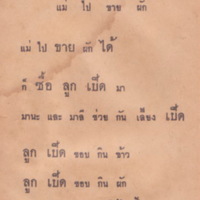 แม่ ไป ขาย ผัก
แม่ ไป ขาย ผัก ได้
ก็ ซื้อ ลูก เป็ด มา
มานะ และ มาลี ช่วย กัน เลี้ยง เป็ด
ลูก เป็ด ชอบ กิน ข้าว
ลูก เป็ด ชอบ กิน ผัก